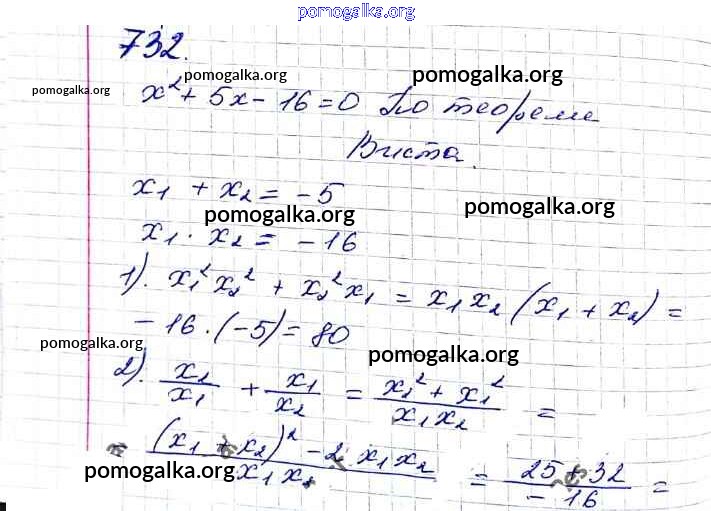 pomogalka.org
732.
pomogalka.org pomogalka.org
pomogalka.org
x² + 5x - 16 = 0 По теореме
Виета.
x₁ + x₂ = -5
pomogalka.org pomogalka.org
x₁ · x₂ = -16
1). x₁² x₂² + x₂² x₁ = x₁ x₂ (x₁ + x₂) =
- 16 · (-5) = 80
pomogalka.org pomogalka.org
2). x₂/x₁ + x₁/x₂ = (x₂² + x₁²)/(x₁ x₂) =
= ((x₁ + x₂)² - 2 x₁ x₂)/(x₁ x₂) = (25 + 32)/(-16) =
pomogalka.org